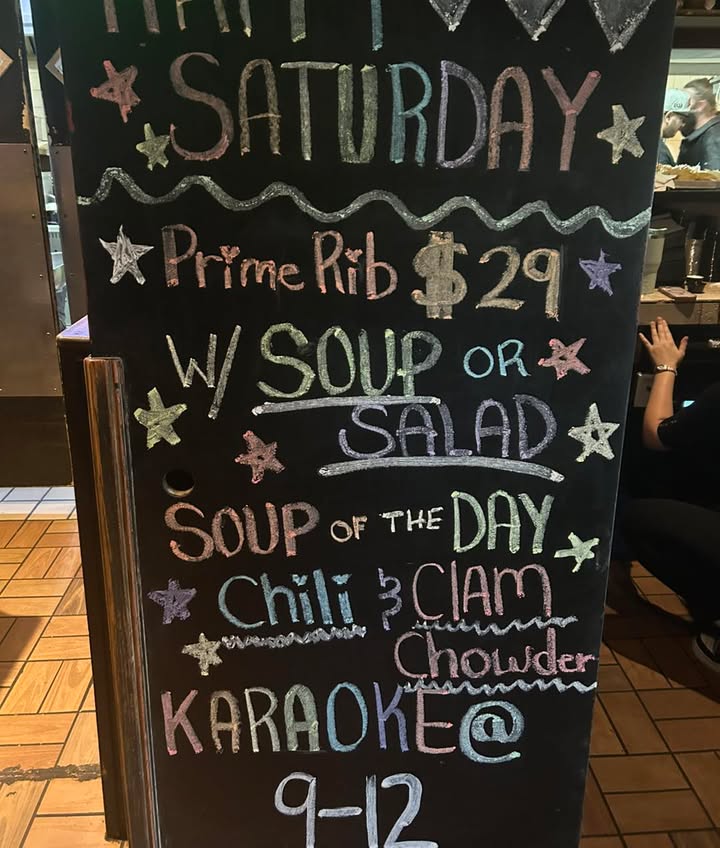 HAPPY
SATURDAY
Prime Rib $29
W/ SOUP OR
SALAD
SOUP OF THE DAY
Chili & Clam
Chowder
KARAOKE @
9-12